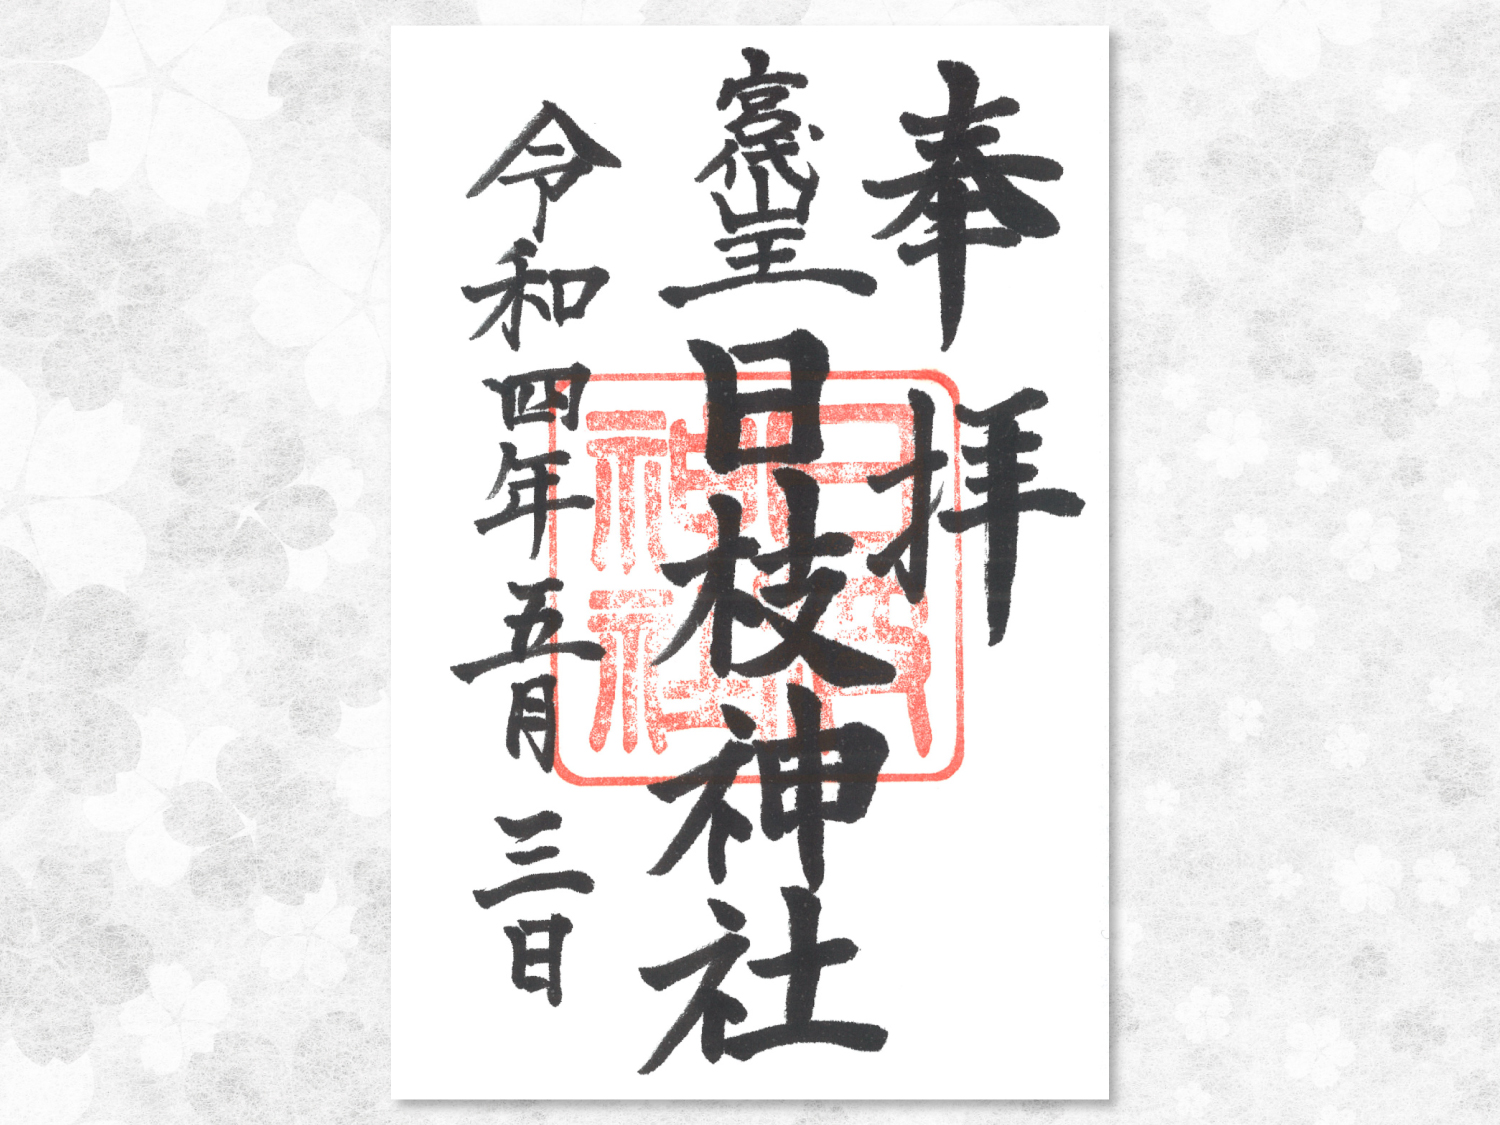 奉拝
宮代山王
日枝神社
令和四年五月三日
日枝神社